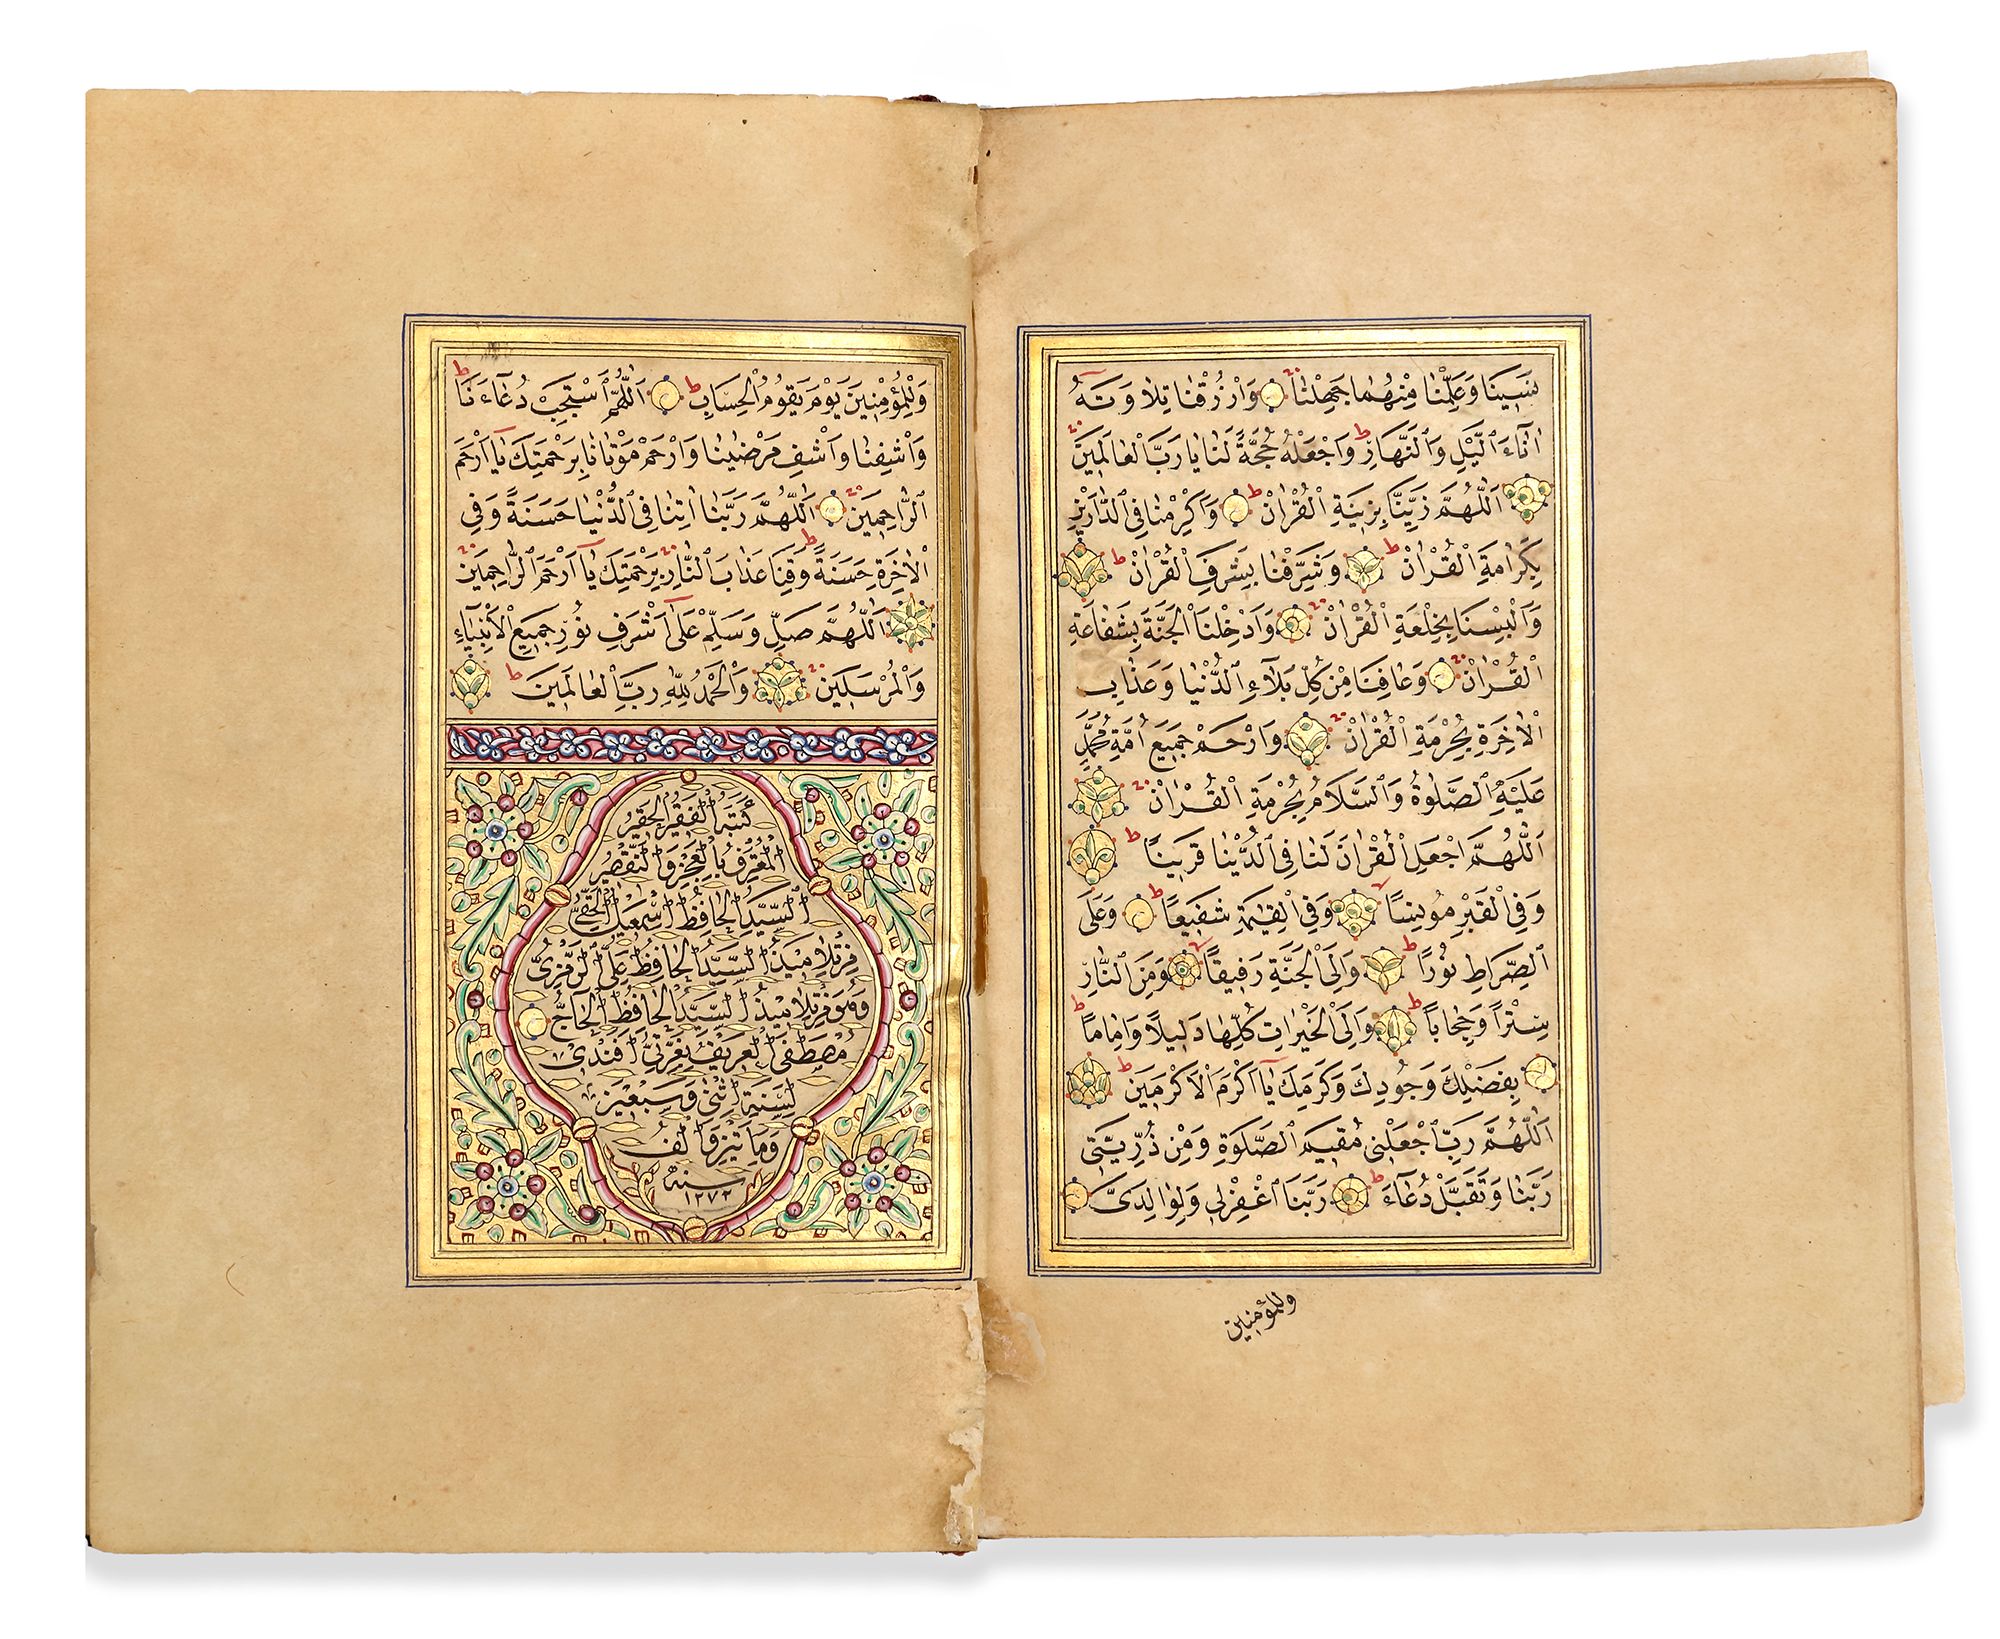 نَسِينَا وَعَلِّمْنَا مِنْهُمَا جَهِلْنَا وَارْزُقْنَا تِلَاوَتَهُ
اٰنَآءَ الَّيْلِ وَالنَّهَارِ وَاجْعَلْهُ حُجَّةً لَنَا يَا رَبَّ الْعَالَمِينَ
اَللّٰهُمَّ زَيِّنَّا بِزِينَةِ الْقُرْاٰنْ وَاَكْرِمْنَا فِي الدَّارَيْنِ
بِكَرَامَةِ الْقُرْاٰنْ وَشَرِّفْنَا بِشَرَفِ الْقُرْاٰنْ
وَاَلْبِسْنَا بِخِلْعَةِ الْقُرْاٰنْ وَاَدْخِلْنَا الْجَنَّةَ بِشَفَاعَةِ
الْقُرْاٰنْ وَعَافِنَا مِنْ كُلِّ بَلَآءِ الدُّنْيَا وَعَذَابِ
الْاٰخِرَةِ بِحُرْمَةِ الْقُرْاٰنْ وَارْحَمْ جَمِيعَ اُمَّةِ مُحَمَّدٍ
عَلَيْهِ الصَّلٰوةُ وَالسَّلَامُ بِحُرْمَةِ الْقُرْاٰنْ
اَللّٰهُمَّ اجْعَلِ الْقُرْاٰنَ لَنَا فِي الدُّنْيَا قَرِينًا
وَفِي الْقَبْرِ مُونِسًا وَفِي الْقِيٰمَةِ شَفِيعًا وَعَلَى
الصِّرَاطِ نُورًا وَاِلَى الْجَنَّةِ رَفِيقًا وَمِنَ النَّارِ
سِتْرًا وَحِجَابًا وَاِلَى الْخَيْرَاتِ كُلِّهَا دَلِيلًا وَاِمَامًا
بِفَضْلِكَ وَجُودِكَ وَكَرَمِكَ يَآ اَكْرَمَ الْاَكْرَمِينَ
اَللّٰهُمَّ رَبِّ اجْعَلْنِي مُقِيمَ الصَّلٰوةِ وَمِنْ ذُرِّيَّتِي
رَبَّنَا وَتَقَبَّلْ دُعَآءِ رَبَّنَا اغْفِرْلِي وَلِوَالِدَيَّ
وللمؤمنين
وَلِلْمُؤْمِنِينَ يَوْمَ يَقُومُ الْحِسَابُ اَللّٰهُمَّ اسْتَجِبْ دُعَآءَنَا
وَاشْفِنَا وَاشْفِ مَرْضٰينَا وَارْحَمْ مَوْتَانَا بِرَحْمَتِكَ يَآ اَرْحَمَ
الرَّاحِمِينَ اَللّٰهُمَّ رَبَّنَا اٰتِنَا فِي الدُّنْيَا حَسَنَةً وَفِي
الْاٰخِرَةِ حَسَنَةً وَقِنَا عَذَابَ النَّارِ بِرَحْمَتِكَ يَآ اَرْحَمَ الرَّاحِمِينَ
اَللّٰهُمَّ صَلِّ وَسَلِّمْ عَلٰى اَشْرَفِ نُورِ جَمِيعِ الْاَنْبِيَآءِ
وَالْمُرْسَلِينَ وَالْحَمْدُ لِلّٰهِ رَبِّ الْعَالَمِينَ
كَتَبَهُ الْفَقِيرُ الْحَقِيرُ
الْمُعْتَرِفُ بِالْعَجْزِ وَالتَّقْصِيرِ
السَّيِّدُ الْحَافِظُ اِسْمٰعِيلُ الْحَقِّي
مِنْ تَلَامِيذِ السَّيِّدِ الْحَافِظِ عَلِيِّ الرَّمْزِيِّ
وَهُوَ مِنْ تَلَامِيذِ السَّيِّدِ الْحَافِظِ الْحَاجِّ
مُصْطَفَى الْعَرِيفِ بِغَرْنِي اَفَنْدِي
لِسَنَةِ اثْنَيْ وَسَبْعِينَ
وَمِائَتَيْنِ وَاَلْفُ
سنه
١٢٧٢